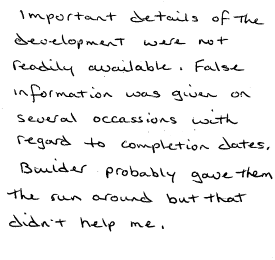 Important details of the
development were not
readily available. False
information was given on
several occassions with
regard to completion dates.
Builder probably gave them
the run around but that
didn't help me.